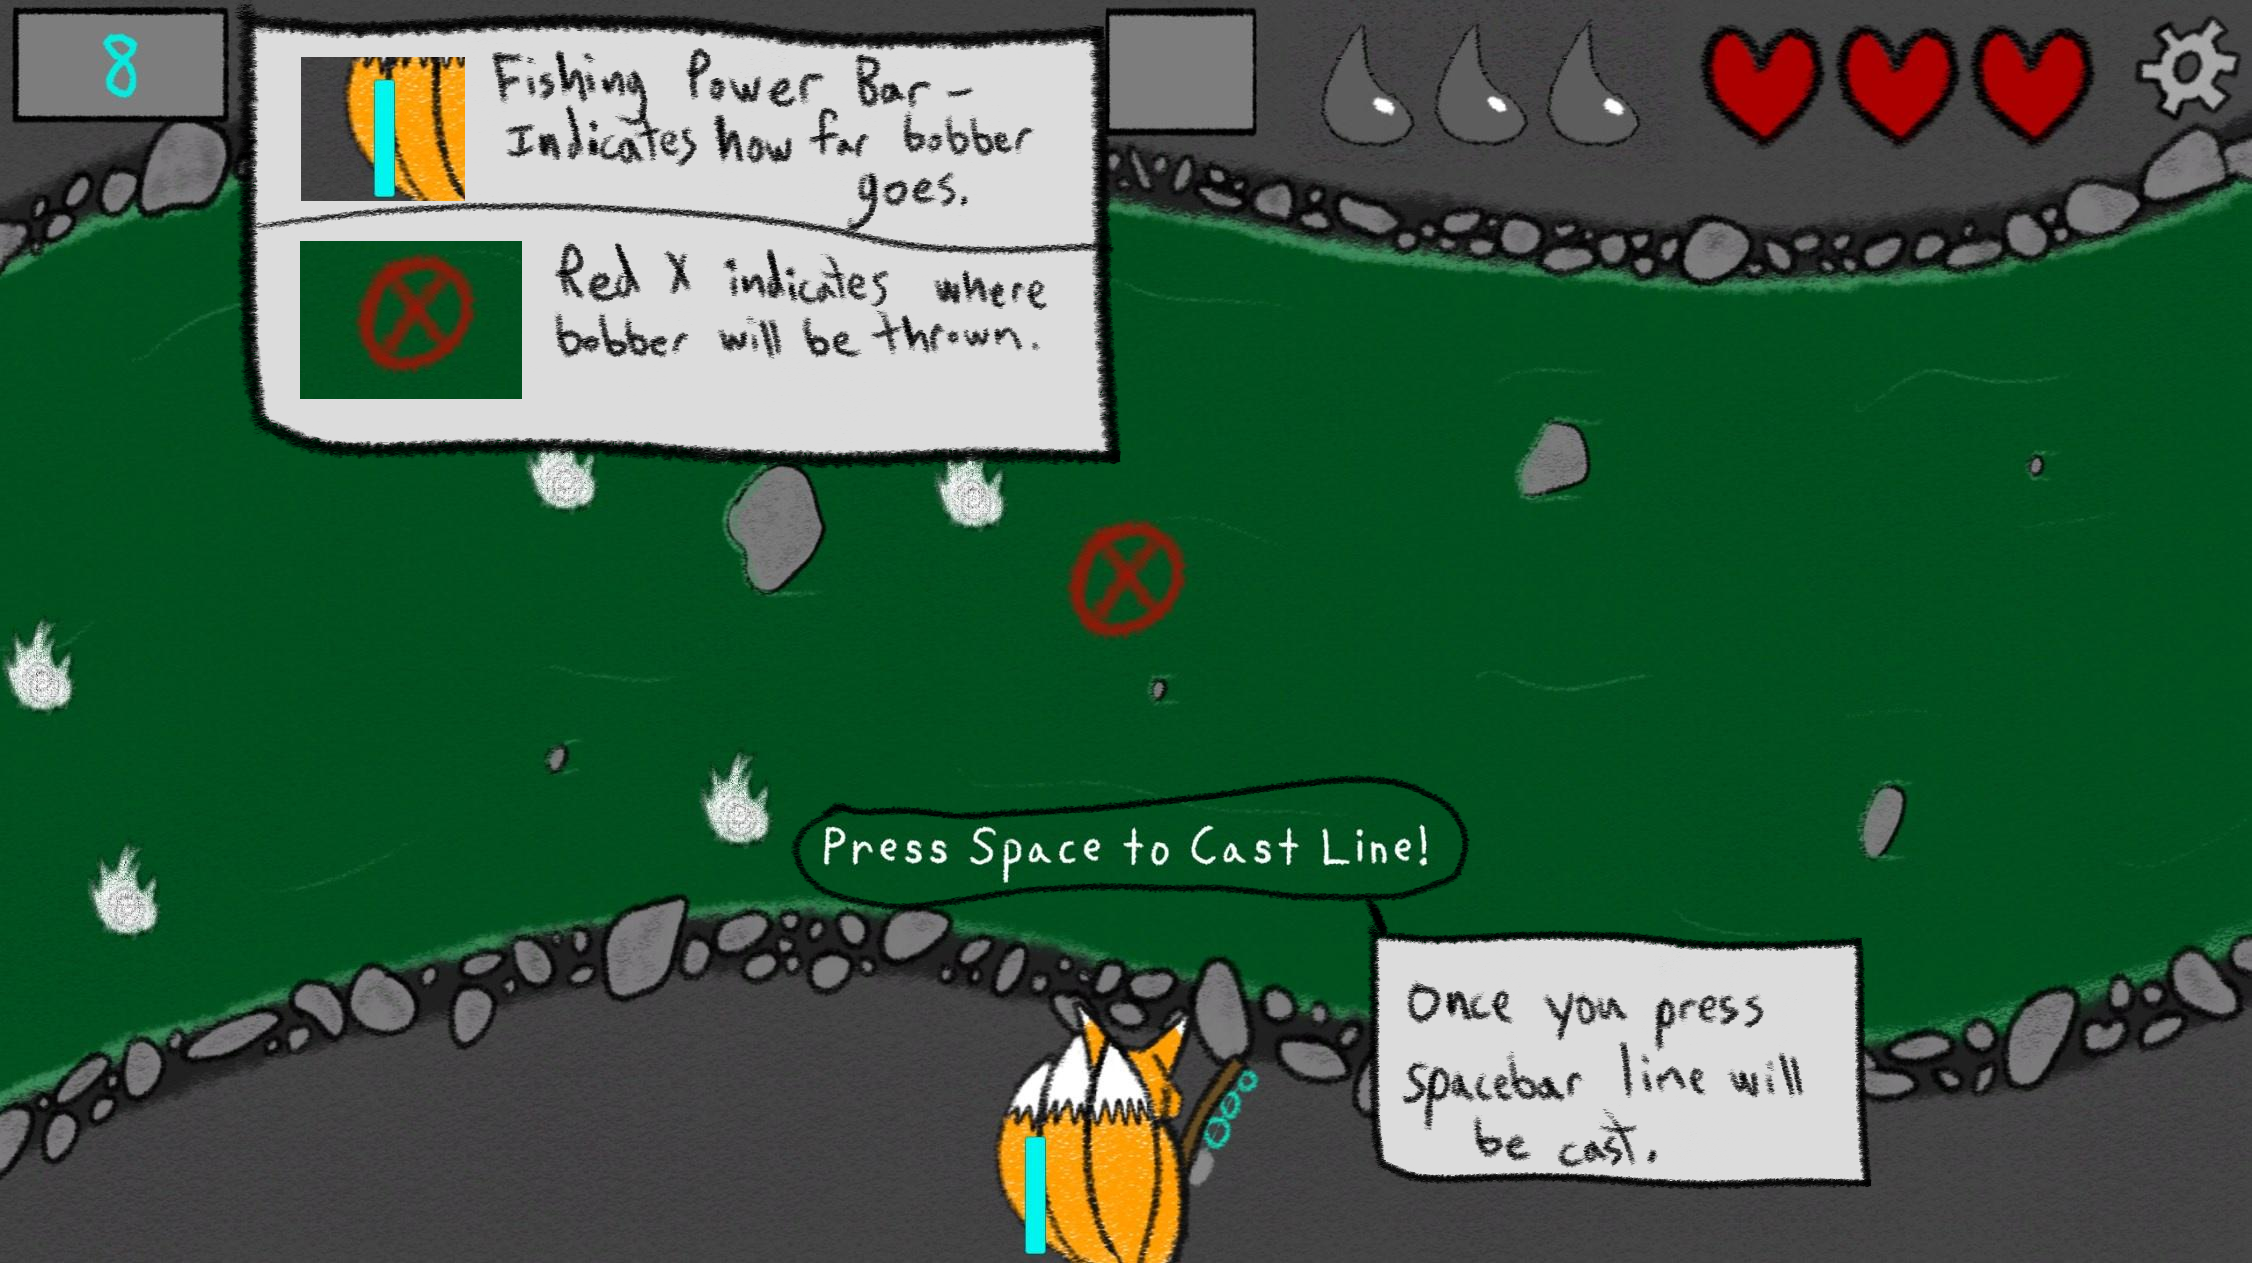 8
Fishing Power Bar -
Indicates how far bobber
goes.
Red X indicates where
bobber will be thrown.
Press Space to Cast Line!
Once you press
spacebar line will
be cast.